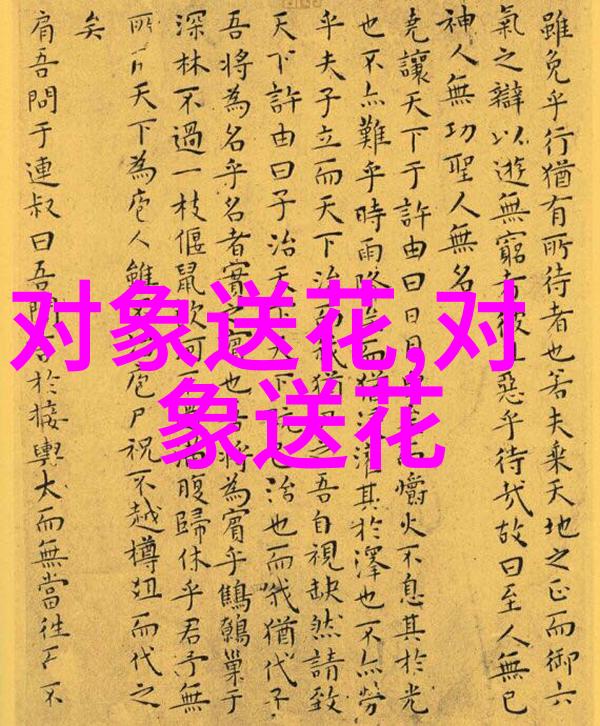 雖免乎行猶有所待者也若夫乘天地之正而御六
氣之辯以遊無窮者彼惡乎待哉故曰至人無己
神人無功聖人無名
堯讓天下于許由曰日月而爝火不息其於光
也不亦難乎時雨降而猶浸灌其於澤也不亦勞
乎夫子立而天下治我猶之吾自視缺然請致
天下許由曰子治天下天下已治也而我猶代子
吾將為名乎名者實之賓也吾將為賓乎鷦鷯巢于
深林不過一枝偃鼠飲河不滿腹歸休乎君予無
所天下為庖人雖不庖尸祝不越樽俎而代之
矣
肩吾問于連叔曰吾聞言於接輿大而無當往而不
对象送花,对
象送花